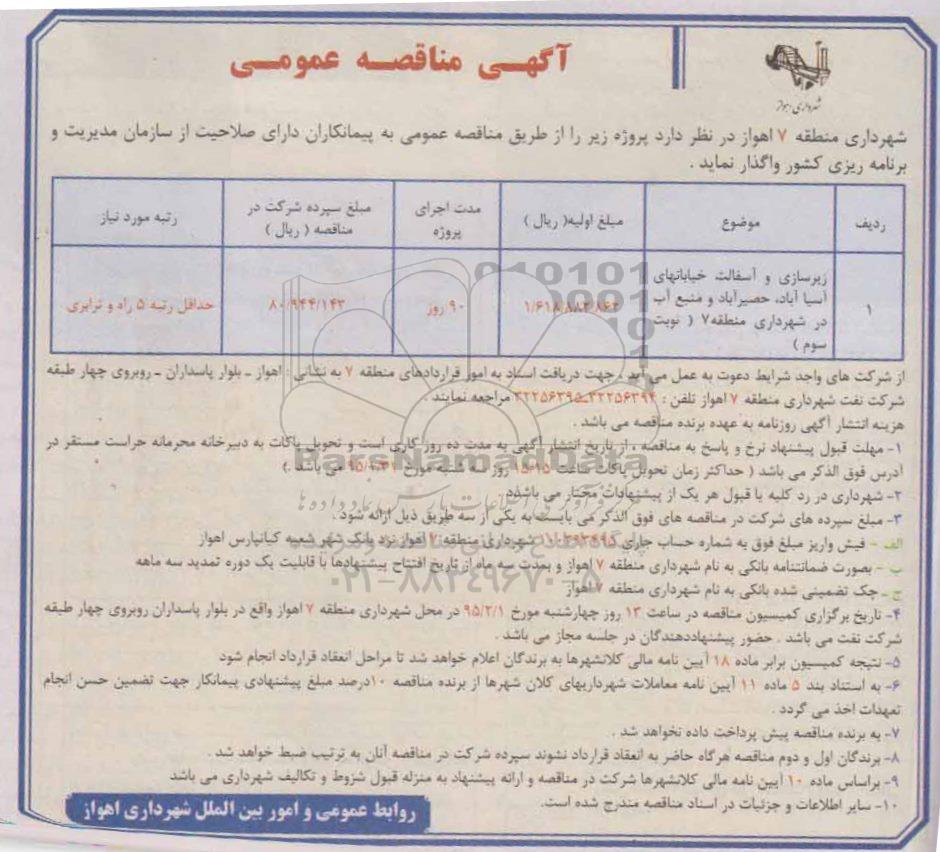 آگهـی مناقصـه عمومـی
شهرداری اهواز
شهرداری منطقه ۷ اهواز در نظر دارد پروژه زیر را از طریق مناقصه عمومی به پیمانکاران دارای صلاحیت از سازمان مدیریت و
برنامه ریزی کشور واگذار نماید .
ردیف
موضوع
مبلغ اولیه( ریال )
مدت اجرای
پروژه
مبلغ سپرده شرکت در
مناقصه ( ریال )
رتبه مورد نیاز
۱
زیرسازی و آسفالت خیابانهای
آسیا آباد، حصیرآباد و منبع آب
در شهرداری منطقه۷ ( نوبت
سوم )
۱/۶۱۸/۸۸۲/۸۶۳
۹۰ روز
۸۰/۹۴۴/۱۴۳
حداقل رتبه ۵ راه و ترابری
از شرکت های واجد شرایط دعوت به عمل می آید ، جهت دریافت اسناد به امور قراردادهای منطقه ۷ به نشانی : اهواز ـ بلوار پاسداران ـ روبروی چهار طبقه
شرکت نفت شهرداری منطقه ۷ اهواز تلفن : ۳۲۲۵۶۳۹۴ـ۳۲۲۵۶۳۹۵ مراجعه نمایند .
هزینه انتشار آگهی روزنامه به عهده برنده مناقصه می باشد .
۱- مهلت قبول پیشنهاد نرخ و پاسخ به مناقصه ، از تاریخ انتشار آگهی به مدت ده روز کاری است و تحویل پاکات به دبیرخانه محرمانه حراست مستقر در
آدرس فوق الذکر می باشد ( حداکثر زمان تحویل پاکات ساعت ۱۵:۱۵ روز سه شنبه مورخ ۹۵/۱/۳۱ می باشد .)
۲- شهرداری در رد کلیه یا قبول هر یک از پیشنهادات مختار می باشد.
۳- مبلغ سپرده های شرکت در مناقصه های فوق الذکر می بایست به یکی از سه طریق ذیل ارائه شود .
الف - فیش واریز مبلغ فوق به شماره حساب جاری شهرداری منطقه ۷ اهواز نزد بانک شهر شعبه کیانپارس اهواز
ب - بصورت ضمانتنامه بانکی به نام شهرداری منطقه ۷ اهواز و بمدت سه ماه از تاریخ افتتاح پیشنهادها با قابلیت یک دوره تمدید سه ماهه
ج ـ چک تضمینی شده بانکی به نام شهرداری منطقه ۷ اهواز
۴- تاریخ برگزاری کمیسیون مناقصه در ساعت ۱۳ روز چهارشنبه مورخ ۹۵/۲/۱ در محل شهرداری منطقه ۷ اهواز واقع در بلوار پاسداران روبروی چهار طبقه
شرکت نفت می باشد . حضور پیشنهاددهندگان در جلسه مجاز می باشد .
۵- نتیجه کمیسیون برابر ماده ۱۸ آیین نامه مالی کلانشهرها به برندگان اعلام خواهد شد تا مراحل انعقاد قرارداد انجام شود
۶- به استناد بند ۵ ماده ۱۱ آیین نامه معاملات شهرداریهای کلان شهرها از برنده مناقصه ۱۰درصد مبلغ پیشنهادی پیمانکار جهت تضمین حسن انجام
تعهدات اخذ می گردد .
۷- به برنده مناقصه پیش پرداخت داده نخواهد شد .
۸- برندگان اول و دوم مناقصه هرگاه حاضر به انعقاد قرارداد نشوند سپرده شرکت در مناقصه آنان به ترتیب ضبط خواهد شد .
۹- براساس ماده ۱۰ آیین نامه مالی کلانشهرها شرکت در مناقصه و ارائه پیشنهاد به منزله قبول شروط و تکالیف شهرداری می باشد
۱۰- سایر اطلاعات و جزئیات در اسناد مناقصه مندرج شده است.
روابط عمومی و امور بین الملل شهرداری اهواز
ParsNamadData
۰۲۱-۸۸۳۴۹۶۷۰-۵